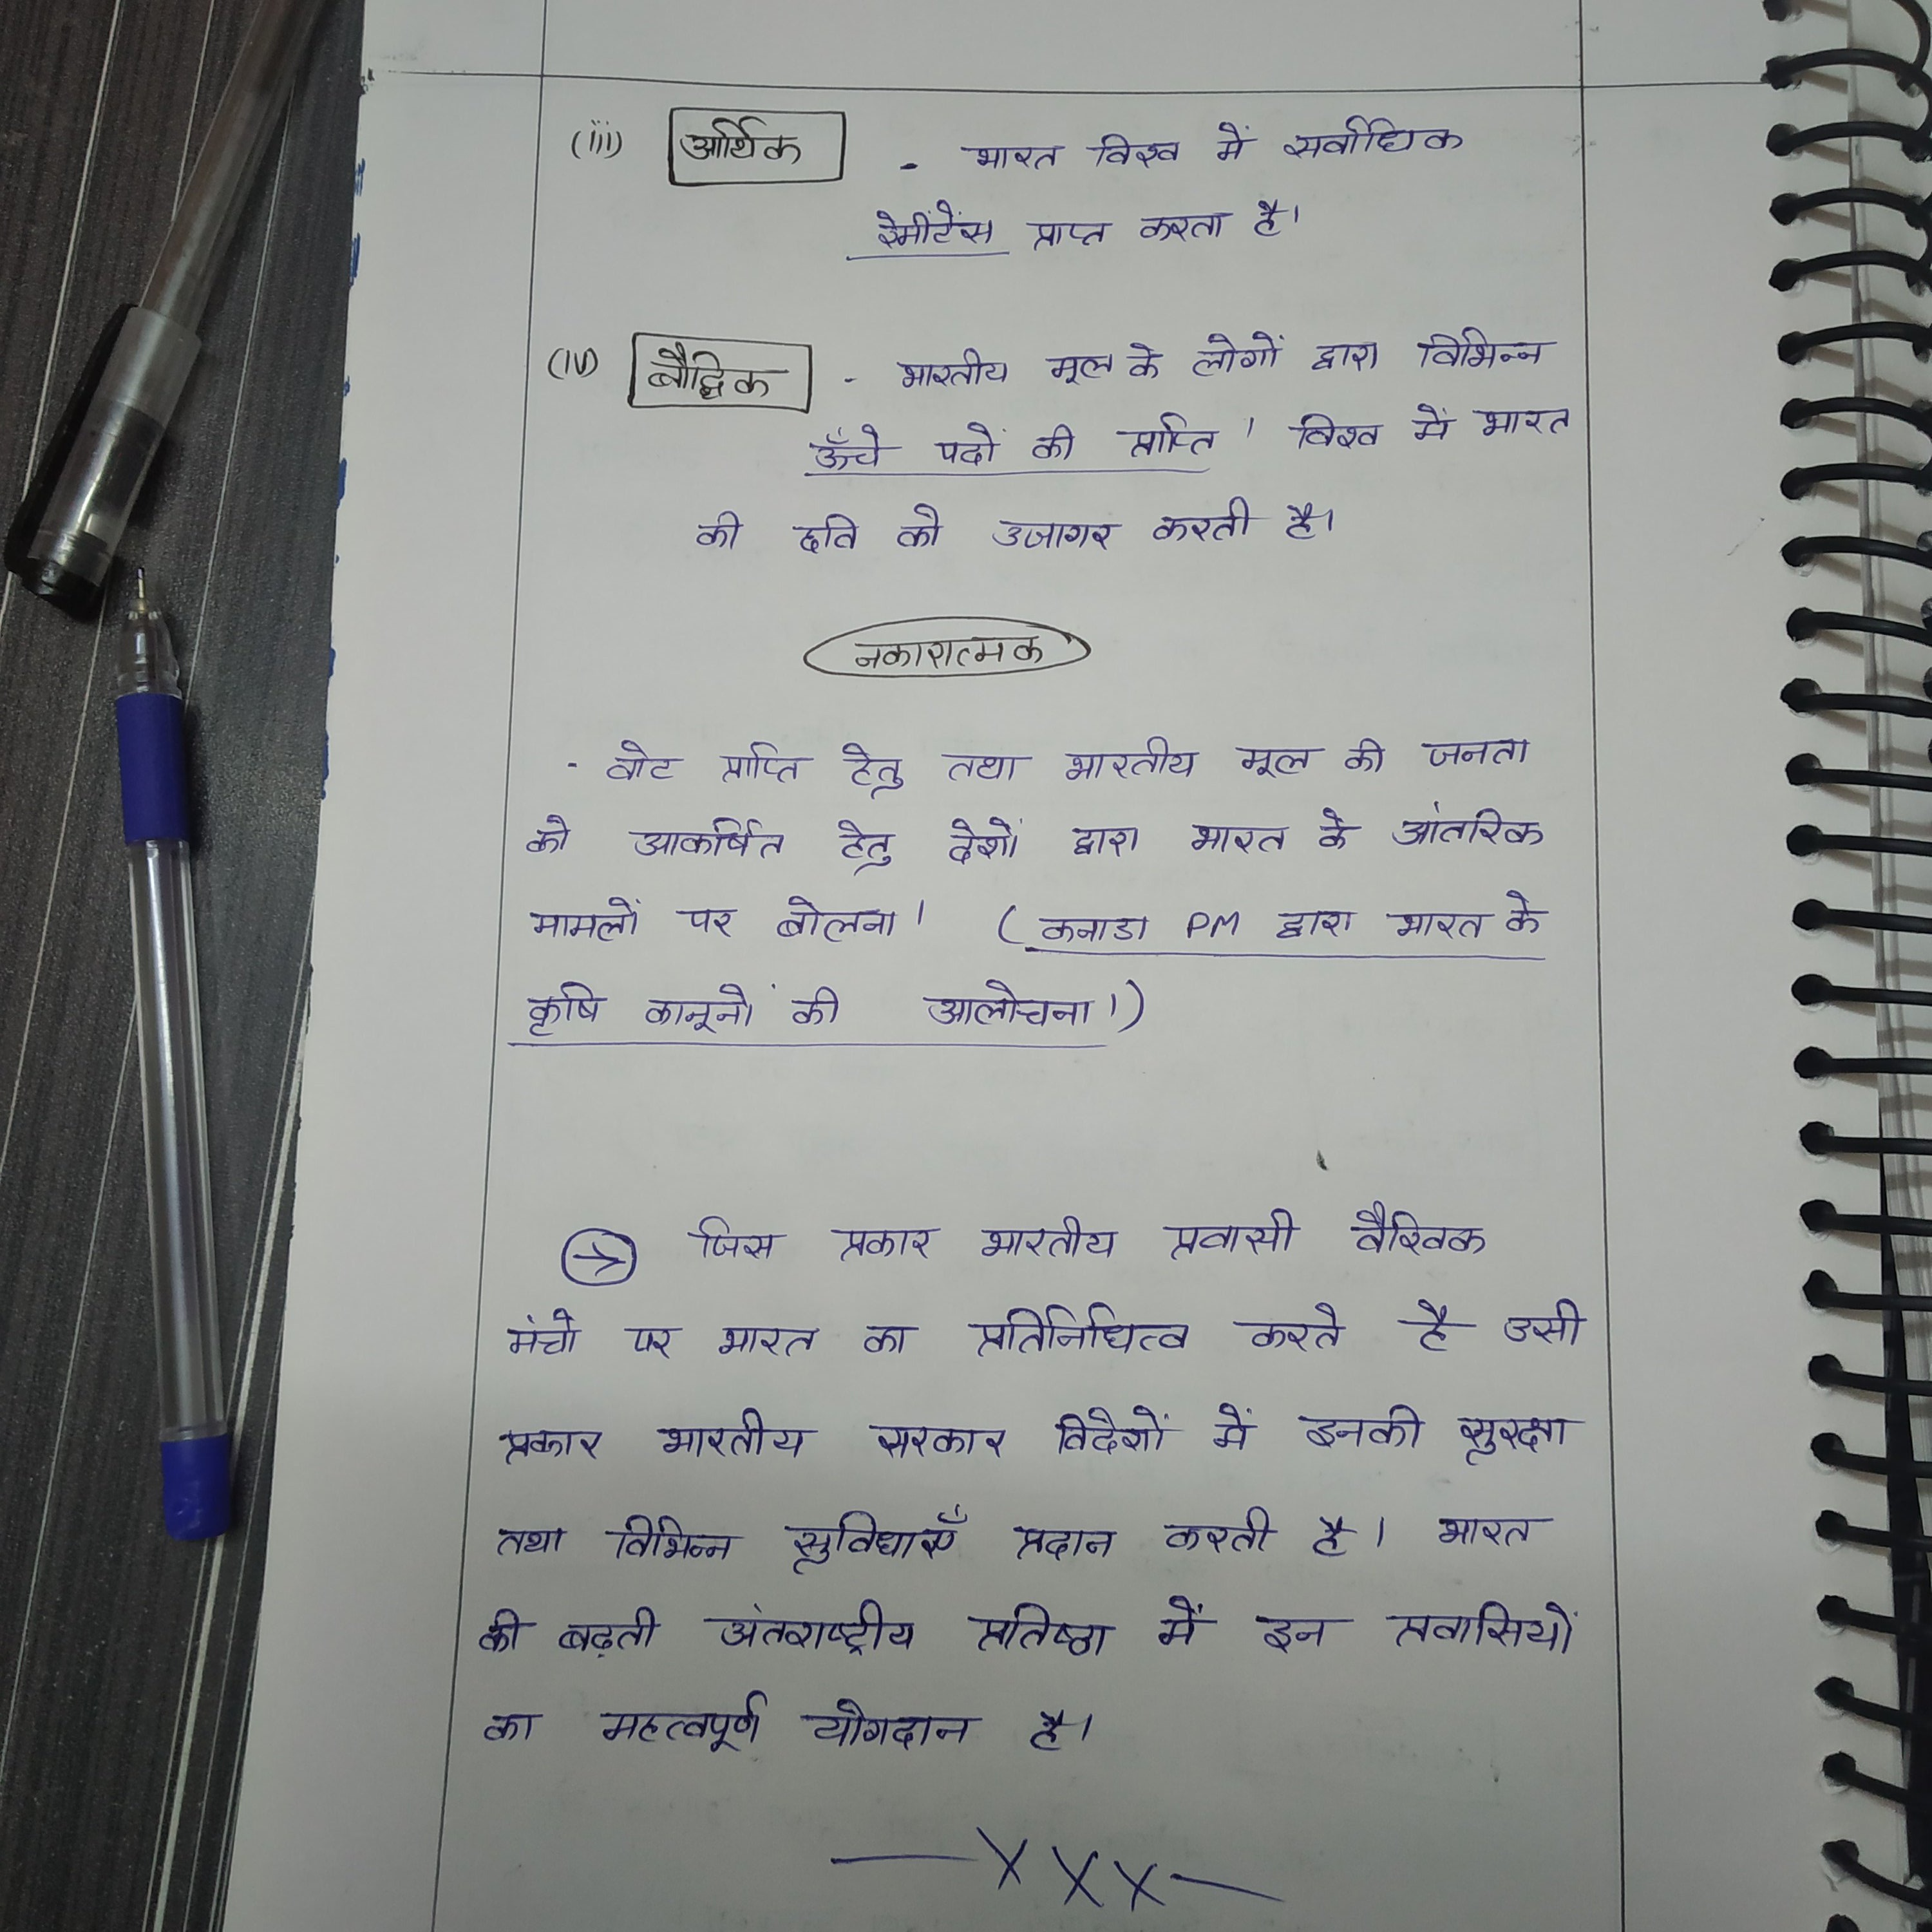 (iii) आर्थिक - भारत विश्व में सर्वाधिक
रेमींटेंस प्राप्त करता है।
(iv) बौद्धिक - भारतीय मूल के लोगों द्वारा विभिन्न
ऊँचे पदों की प्राप्ति। विश्व में भारत
की छवि को उजागर करती है।
नकारात्मक
- वोट प्राप्ति हेतु तथा भारतीय मूल की जनता
को आकर्षित हेतु देशों द्वारा भारत के आंतरिक
मामलों पर बोलना। (कनाडा PM द्वारा भारत के
कृषि कानूनों की आलोचना।)
→ जिस प्रकार भारतीय प्रवासी वैश्विक
मंचो पर भारत का प्रतिनिधित्व करते है उसी
प्रकार भारतीय सरकार विदेशों में इनकी सुरक्षा
तथा विभिन्न सुविधाएँ प्रदान करती है। भारत
की बढ़ती अंतराष्ट्रीय प्रतिष्ठा में इन प्रवासियों
का महत्वपूर्ण योगदान है।
—XXX—